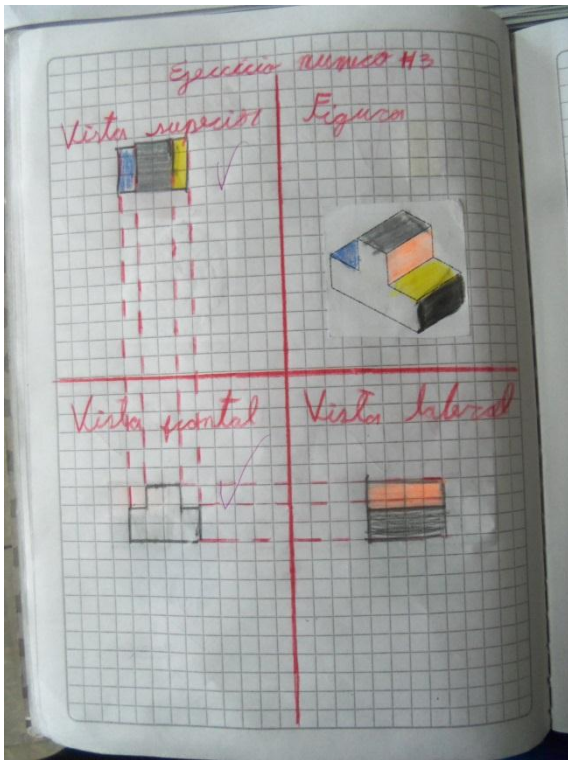 Ejercicio numero #3
Vista superior
Figura
Vista frontal
Vista lateral